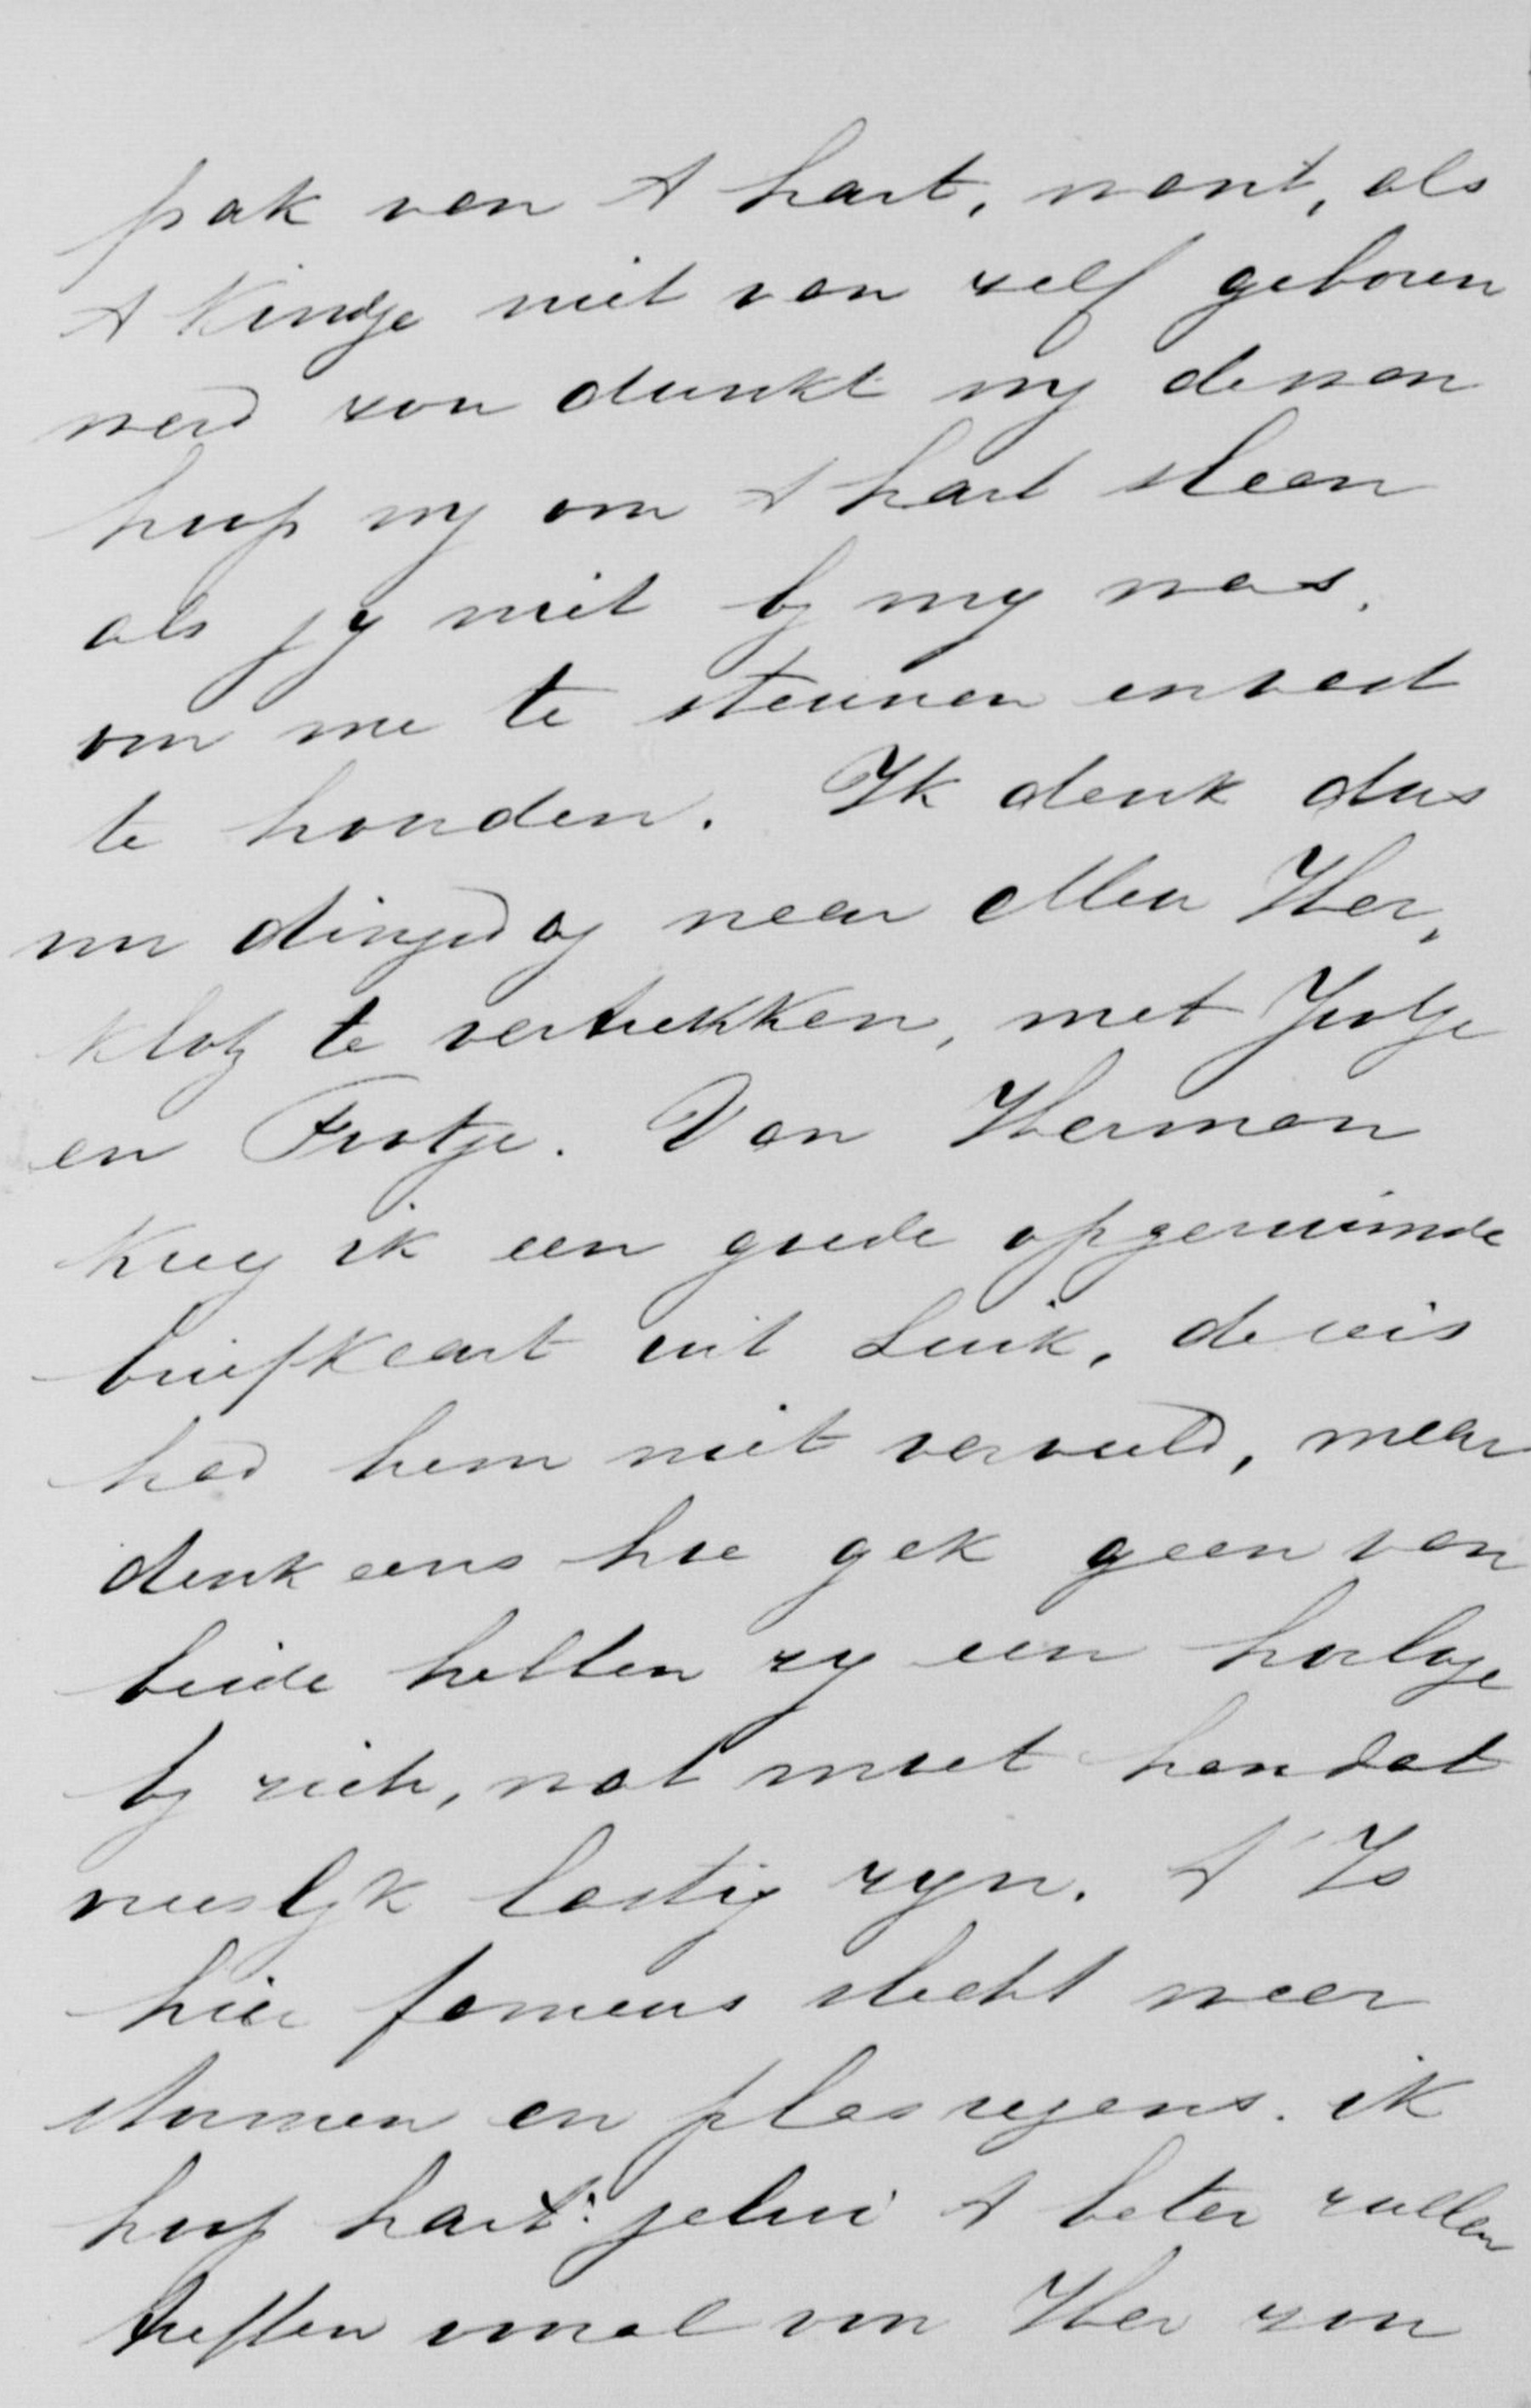 pak van 't hart, want, als
't kindje niet van zelf geboren
werd zou dunkt my de wan
hoop my om 't hart slaan
als jy niet by my was,
om me te steunen en vast
te houden. Ik denk dus
nu dingsdag naar Her,
klotz te vertrekken, met Jootje
en Trotje. Van Herman
kreeg ik een goede opgeruimde
briefkaart uit Luik, de reis
had hem niet verveeld, maar
denk eens hoe gek geen van
beide hebben zy een horloge
by zich, wat moet hen dat
vreeslyk lastig zyn. 't Is
hier fameus slecht weer
stormen en plasregens. ik
hoop hart: jelui 't beter zullen
treffen vooral om Her zou